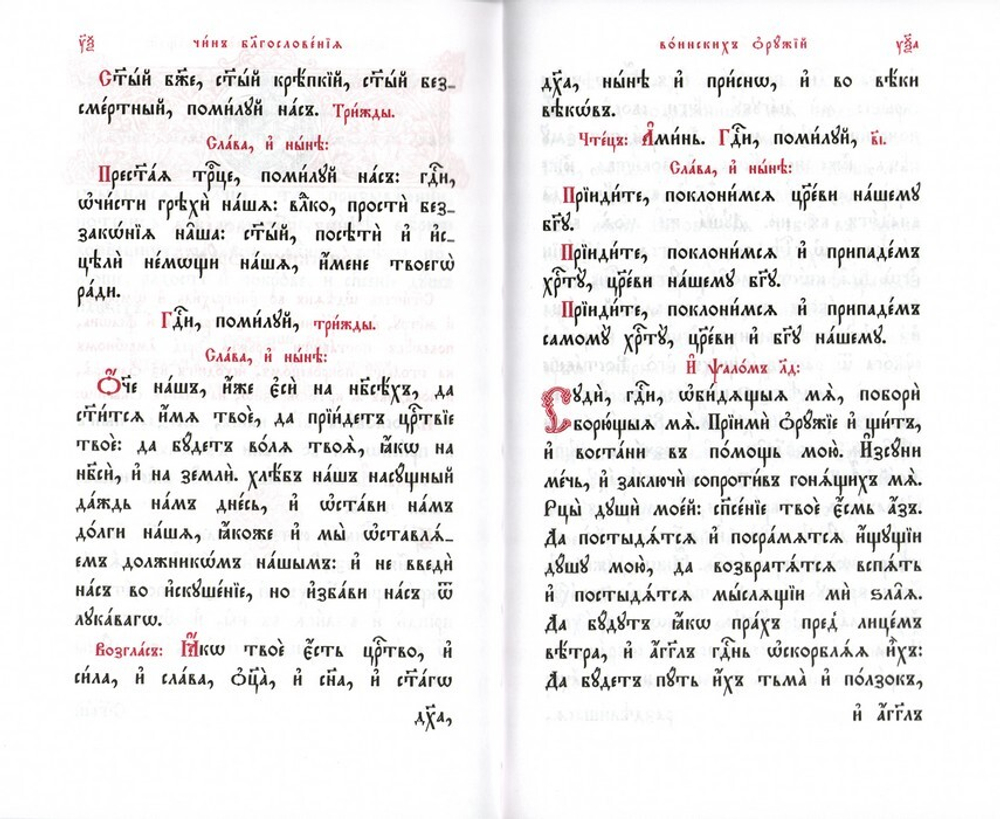 уѯ҃ чи́нъ блгⷭ҇ове́нїѧ
Ст҃ы́й бж҃е, ст҃ы́й крѣ́пкїй, ст҃ы́й без_
сме́ртный, поми́лꙋй на́съ. Три́жды.
Сла́ва, и҆ ны́нѣ:
Прест҃а́ѧ трⷪ҇це, поми́лꙋй на́съ: гдⷭ҇и,
ѡ҆чи́сти грѣхѝ на́шѧ: влⷣко, простѝ без_
закѡ́нїѧ на̑ша: ст҃ы́й, посѣтѝ и҆ и҆с_
цѣлѝ не́мощи на́шѧ, и҆́мене твоегѡ̀
ра́ди.
Гдⷭ҇и, поми́лꙋй, три́жды.
Сла́ва, и҆ ны́нѣ:
Ѻ҆́ч҃е на́шъ, и҆́же є҆сѝ на нб҃сѣ́хъ, да
ст҃и́тсѧ и҆́мѧ твоѐ, да прїи́детъ црⷭ҇твїе
твоѐ: да бꙋ́детъ во́лѧ твоѧ̀, ꙗ҆́кѡ на
нб҃сѝ, и҆ на землѝ. хлѣ́бъ на́шъ насꙋ́щный
да́ждь на́мъ дне́сь, и҆ ѡ҆ста́ви на́мъ
до́лги на́шѧ, ꙗ҆́коже и҆ мы̀ ѡ҆ставлѧ́_
емъ должникѡ́мъ на́шымъ: и҆ не введѝ
на́съ во и҆скꙋше́нїе, но и҆зба́ви на́съ ѿ
лꙋка́вагѡ.
Возгла́съ: Ꙗ҆́кѡ твоѐ є҆́сть црⷭ҇тво, и҆
си́ла, и҆ сла́ва, ѻ҆ц҃а̀, и҆ сн҃а, и҆ ст҃а́гѡ
дх҃а,
во́инскихъ ѻ҆рꙋ́жїй уѯ҃а
дх҃а, ны́нѣ и҆ при́снѡ, и҆ во вѣ́ки
вѣкѡ́въ.
Чте́цъ: А҆ми́нь. Гдⷭ҇и, поми́лꙋй, в҃і.
Сла́ва, и҆ ны́нѣ:
Прїиди́те, поклони́мсѧ цр҃е́ви на́шемꙋ
бг҃ꙋ.
Прїиди́те, поклони́мсѧ и҆ припаде́мъ
хрⷭ҇тꙋ̀, цр҃е́ви на́шемꙋ бг҃ꙋ.
Прїиди́те, поклони́мсѧ и҆ припаде́мъ
самомꙋ̀ хрⷭ҇тꙋ̀, цр҃е́ви и҆ бг҃ꙋ на́шемꙋ.
И҆ ѱало́мъ л҃д:
Сꙋдѝ, гдⷭ҇и, ѡ҆би́дѧщыѧ мѧ̀, поборѝ
борю́щыѧ мѧ̀. Прїимѝ ѻ҆рꙋ́жїе и҆ щи́тъ,
и҆ воста́ни въ по́мощь мою̀. И҆зсꙋ́ни
ме́чь, и҆ заключѝ сопроти́въ гонѧ́щихъ мѧ̀.
Рцы̀ дꙋшѝ мое́й: сп҃се́нїе твоѐ є҆́смь а҆́зъ.
Да постыдѧ́тсѧ и҆ посра́мѧтсѧ и҆́щꙋщїи
дꙋ́шꙋ мою̀, да возвратѧ́тсѧ вспѧ́ть
и҆ постыдѧ́тсѧ мы́слѧщїи мѝ ѕла̑ѧ.
Да бꙋ́дꙋтъ ꙗ҆́кѡ пра́хъ пред̾ лице́мъ
вѣ́тра, и҆ а҆́гг҃лъ гдⷭ҇нь ѡ҆скорблѧ́ѧ и҆̀хъ:
Да бꙋ́детъ пꙋ́ть и҆́хъ тьма̀ и҆ по́лзокъ,
и҆ а҆́гг҃лъ